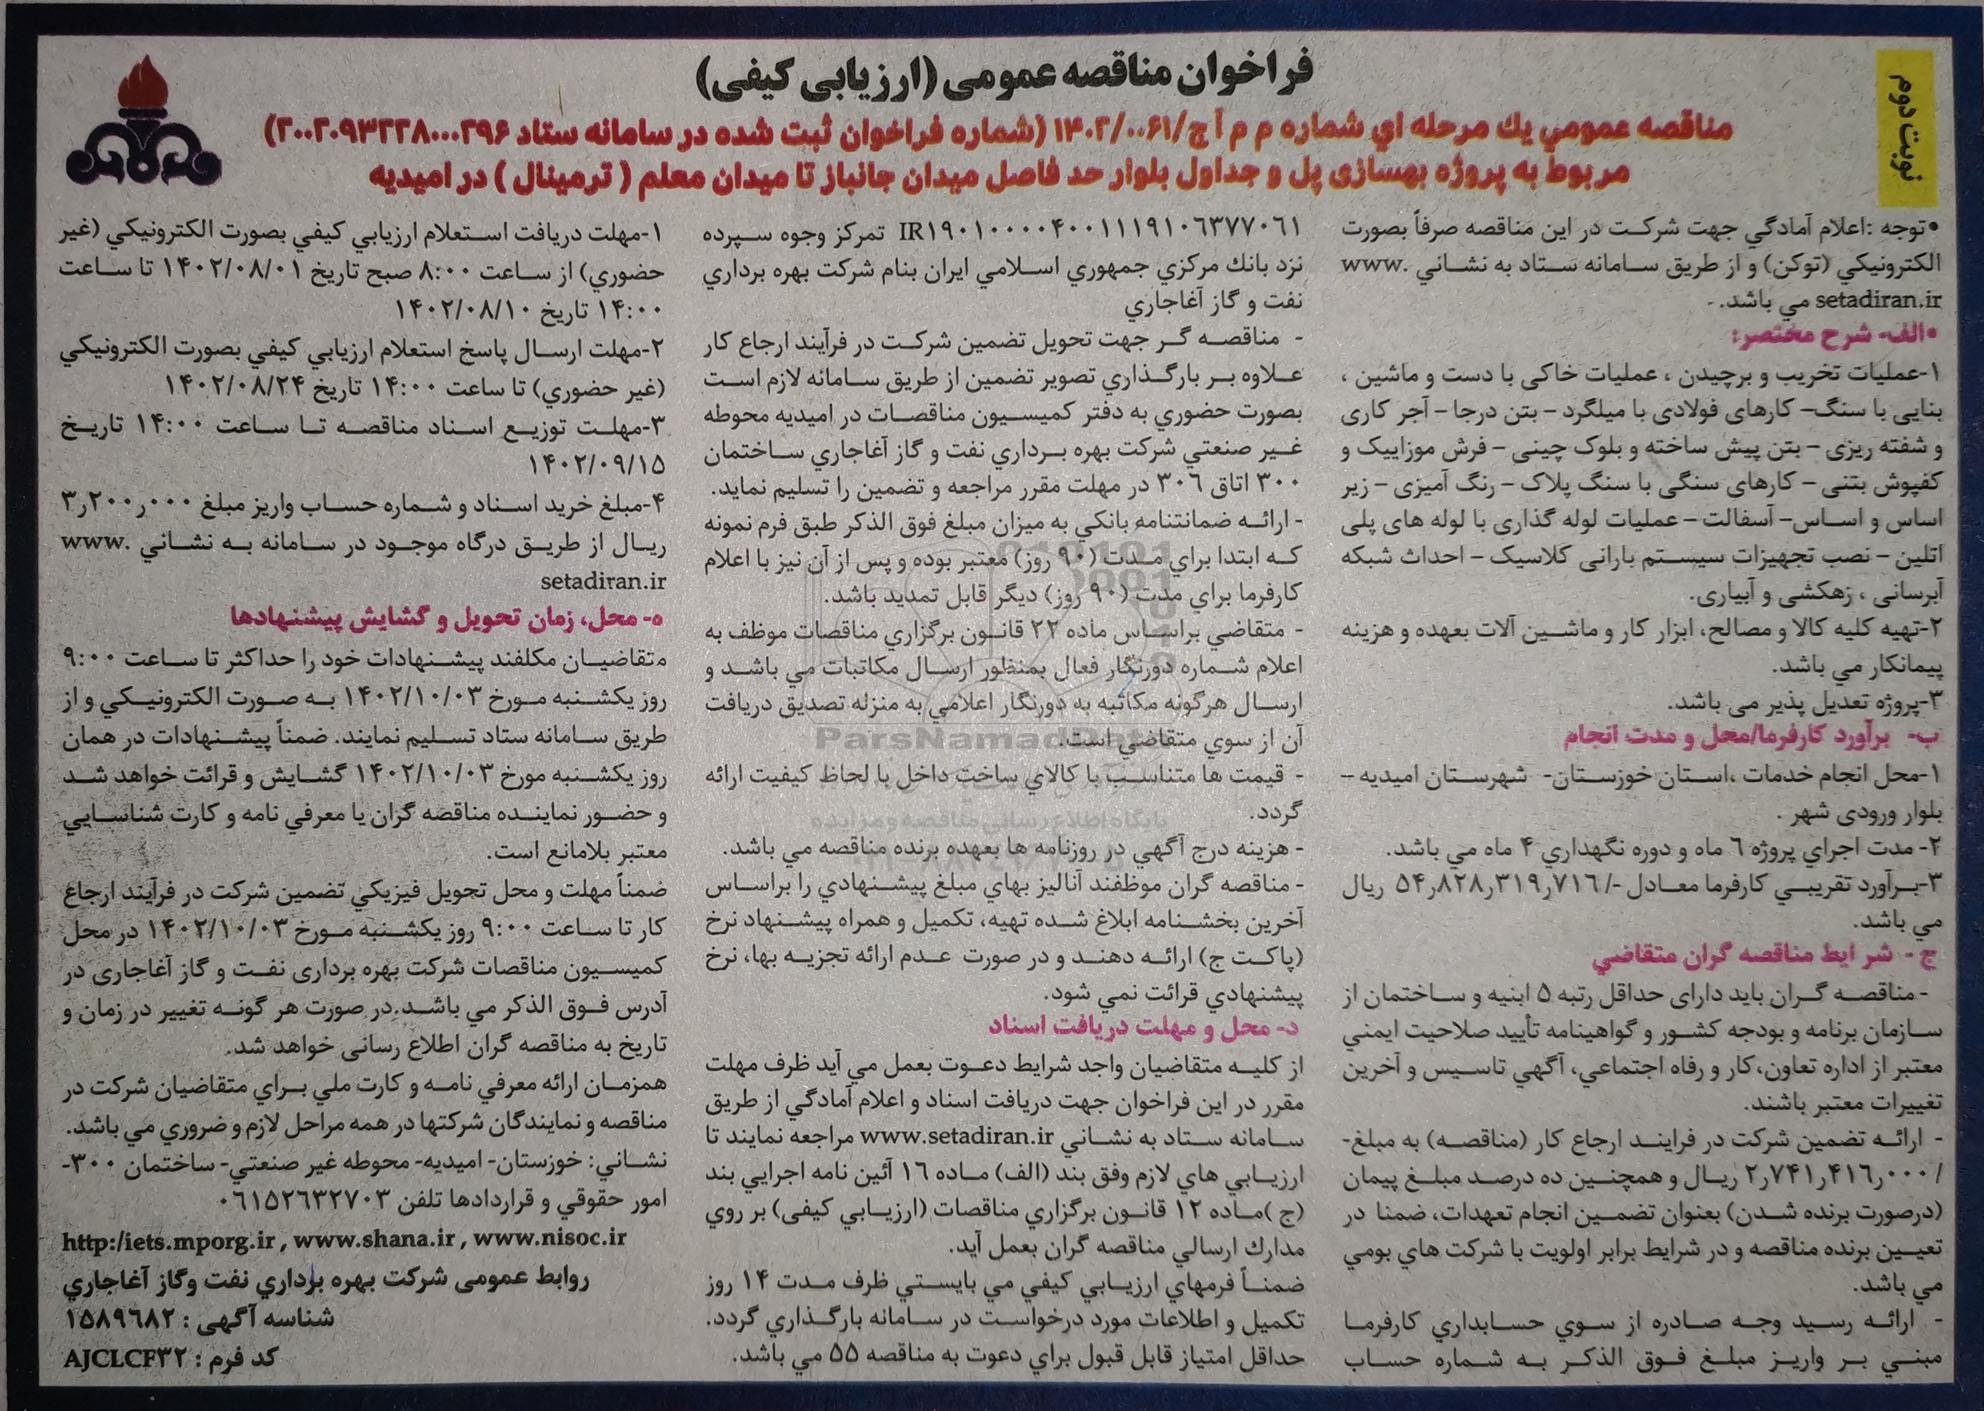 نوبت دوم
فراخوان مناقصه عمومی (ارزیابی کیفی)
مناقصه عمومي يك مرحله اي شماره م م آ ج/۱۴۰۲/۰۰۶۱ (شماره فراخوان ثبت شده در سامانه ستاد ۲۰۰۲۰۹۳۲۲۸۰۰۰۲۹۶)
مربوط به پروژه بهسازی پل و جداول بلوار حد فاصل میدان جانباز تا میدان معلم ( ترمینال ) در امیدیه
•توجه :اعلام آمادگي جهت شركت در اين مناقصه صرفاً بصورت
الكترونيكي (توكن) و از طريق سامانه ستاد به نشاني www.
setadiran.ir مي باشد.
•الف- شرح مختصر:
۱-عملیات تخریب و برچیدن ، عملیات خاکی با دست و ماشین ،
بنایی با سنگ- کارهای فولادی با میلگرد – بتن درجا – آجر کاری
و شفته ریزی – بتن پیش ساخته و بلوک چینی – فرش موزاییک و
کفپوش بتنی – کارهای سنگی با سنگ پلاک – رنگ آمیزی – زیر
اساس و اساس- آسفالت – عملیات لوله گذاری با لوله های پلی
اتلین – نصب تجهیزات سیستم بارانی کلاسیک – احداث شبکه
آبرسانی ، زهکشی و آبیاری.
۲-تهیه کلیه کالا و مصالح، ابزار کار و ماشین آلات بعهده و هزینه
پیمانکار می باشد.
۳-پروژه تعدیل پذیر می باشد.
ب- برآورد كارفرما/محل و مدت انجام
۱-محل انجام خدمات ،استان خوزستان- شهرستان امیدیه –
بلوار ورودی شهر .
۲- مدت اجراي پروژه ۶ ماه و دوره نگهداري ۴ ماه مي باشد.
۳-برآورد تقريبي كارفرما معادل -/۵۴٫۸۲۸٫۳۱۹٫۷۱۶ ريال
مي باشد.
ج - شرايط مناقصه گران متقاضي
-مناقصه گران باید دارای حداقل رتبه ۵ ابنیه و ساختمان از
سازمان برنامه و بودجه کشور و گواهینامه تأیید صلاحیت ایمني
معتبر از اداره تعاون،كار و رفاه اجتماعي، آگهي تاسيس و آخرين
تغييرات معتبر باشند.
- ارائه تضمین شرکت در فرایند ارجاع کار (مناقصه) به مبلغ-
/۲٫۷۴۱٫۴۱۶٫۰۰۰ ریال و همچنین ده درصد مبلغ پیمان
(درصورت برنده شدن) بعنوان تضمین انجام تعهدات، ضمنا در
تعيين برنده مناقصه و در شرايط برابر اولويت با شركت هاي بومي
مي باشد.
- ارائه رسيد وجه صادره از سوي حسابداري كارفرما
مبني بر واريز مبلغ فوق الذكر به شماره حساب
IR۱۹۰۱۰۰۰۰۴۰۰۱۱۱۹۱۰۶۳۷۷۰۶۱ تمركز وجوه سپرده
نزد بانك مركزي جمهوري اسلامي ايران بنام شركت بهره برداري
نفت و گاز آغاجاري
- مناقصه گر جهت تحويل تضمين شركت در فرآيند ارجاع كار
علاوه بر بارگذاري تصوير تضمين از طريق سامانه لازم است
بصورت حضوري به دفتر كميسيون مناقصات در اميديه محوطه
غير صنعتي شركت بهره برداري نفت و گاز آغاجاري ساختمان
۳۰۰ اتاق ۳۰۶ در مهلت مقرر مراجعه و تضمين را تسليم نمايد.
- ارائه ضمانتنامه بانكي به ميزان مبلغ فوق الذكر طبق فرم نمونه
كه ابتدا براي مدت (۹۰ روز) معتبر بوده و پس از آن نيز با اعلام
كارفرما براي مدت (۹۰ روز) ديگر قابل تمديد باشد.
- متقاضي براساس ماده ۲۲ قانون برگزاري مناقصات موظف به
اعلام شماره دورنگار فعال بمنظور ارسال مكاتبات مي باشد و
ارسال هرگونه مكاتبه به دورنگار اعلامي به منزله تصديق دريافت
آن از سوي متقاضي است.
- قيمت ها متناسب با كالاي ساخت داخل با لحاظ كيفيت ارائه
گردد.
- هزينه درج آگهي در روزنامه ها بعهده برنده مناقصه مي باشد.
- مناقصه گران موظفند آناليز بهاي مبلغ پيشنهادي را براساس
آخرين بخشنامه ابلاغ شده تهيه، تكميل و همراه پيشنهاد نرخ
(پاكت ج) ارائه دهند و در صورت عدم ارائه تجزيه بها، نرخ
پيشنهادي قرائت نمي شود.
د- محل و مهلت دريافت اسناد
از كليه متقاضيان واجد شرايط دعوت بعمل مي آيد ظرف مهلت
مقرر در اين فراخوان جهت دريافت اسناد و اعلام آمادگي از طريق
سامانه ستاد به نشاني www.setadiran.ir مراجعه نمايند تا
ارزيابي هاي لازم وفق بند (الف) ماده ۱۶ آئين نامه اجرايي بند
(ج )ماده ۱۲ قانون برگزاري مناقصات (ارزيابي كيفي) بر روي
مدارك ارسالي مناقصه گران بعمل آيد.
ضمناً فرمهاي ارزيابي كيفي مي بايستي ظرف مدت ۱۴ روز
تكميل و اطلاعات مورد درخواست در سامانه بارگذاري گردد.
حداقل امتياز قابل قبول براي دعوت به مناقصه ۵۵ مي باشد.
۱-مهلت دريافت استعلام ارزيابي كيفي بصورت الكترونيكي (غير
حضوري) از ساعت ۸:۰۰ صبح تاريخ ۱۴۰۲/۰۸/۰۱ تا ساعت
۱۴:۰۰ تاريخ ۱۴۰۲/۰۸/۱۰
۲-مهلت ارسال پاسخ استعلام ارزيابي كيفي بصورت الكترونيكي
(غير حضوري) تا ساعت ۱۴:۰۰ تاريخ ۱۴۰۲/۰۸/۲۴
۳-مهلت توزيع اسناد مناقصه تا ساعت ۱۴:۰۰ تاريخ
۱۴۰۲/۰۹/۱۵
۴-مبلغ خريد اسناد و شماره حساب واريز مبلغ ۳٫۲۰۰٫۰۰۰
ريال از طريق درگاه موجود در سامانه به نشاني www.
setadiran.ir
ه- محل، زمان تحويل و گشايش پيشنهادها
متقاضيان مكلفند پيشنهادات خود را حداكثر تا ساعت ۹:۰۰
روز يكشنبه مورخ ۱۴۰۲/۱۰/۰۳ به صورت الكترونيكي و از
طريق سامانه ستاد تسليم نمايند. ضمناً پيشنهادات در همان
روز يكشنبه مورخ ۱۴۰۲/۱۰/۰۳ گشايش و قرائت خواهد شد
و حضور نماينده مناقصه گران با معرفي نامه و كارت شناسايي
معتبر بلامانع است.
ضمناً مهلت و محل تحويل فيزيكي تضمين شركت در فرآيند ارجاع
كار تا ساعت ۹:۰۰ روز يكشنبه مورخ ۱۴۰۲/۱۰/۰۳ در محل
کمیسیون مناقصات شرکت بهره برداری نفت و گاز آغاجاری در
آدرس فوق الذكر مي باشد.در صورت هر گونه تغيير در زمان و
تاریخ به مناقصه گران اطلاع رسانی خواهد شد.
همزمان ارائه معرفي نامه و كارت ملي براي متقاضيان شركت در
مناقصه و نمايندگان شركتها در همه مراحل لازم و ضروري مي باشد.
نشاني: خوزستان- اميديه- محوطه غير صنعتي- ساختمان ۳۰۰-
امور حقوقي و قراردادها تلفن ۰۶۱۵۲۶۳۲۷۰۳
http:/iets.mporg.ir , www.shana.ir , www.nisoc.ir
روابط عمومی شركت بهره برداري نفت وگاز آغاجاري
شناسه آگهی : ۱۵۸۹۶۸۲
کد فرم : AJCLCF۳۲
ParsNamadData
پایگاه اطلاع رسانی مناقصه و مزایده